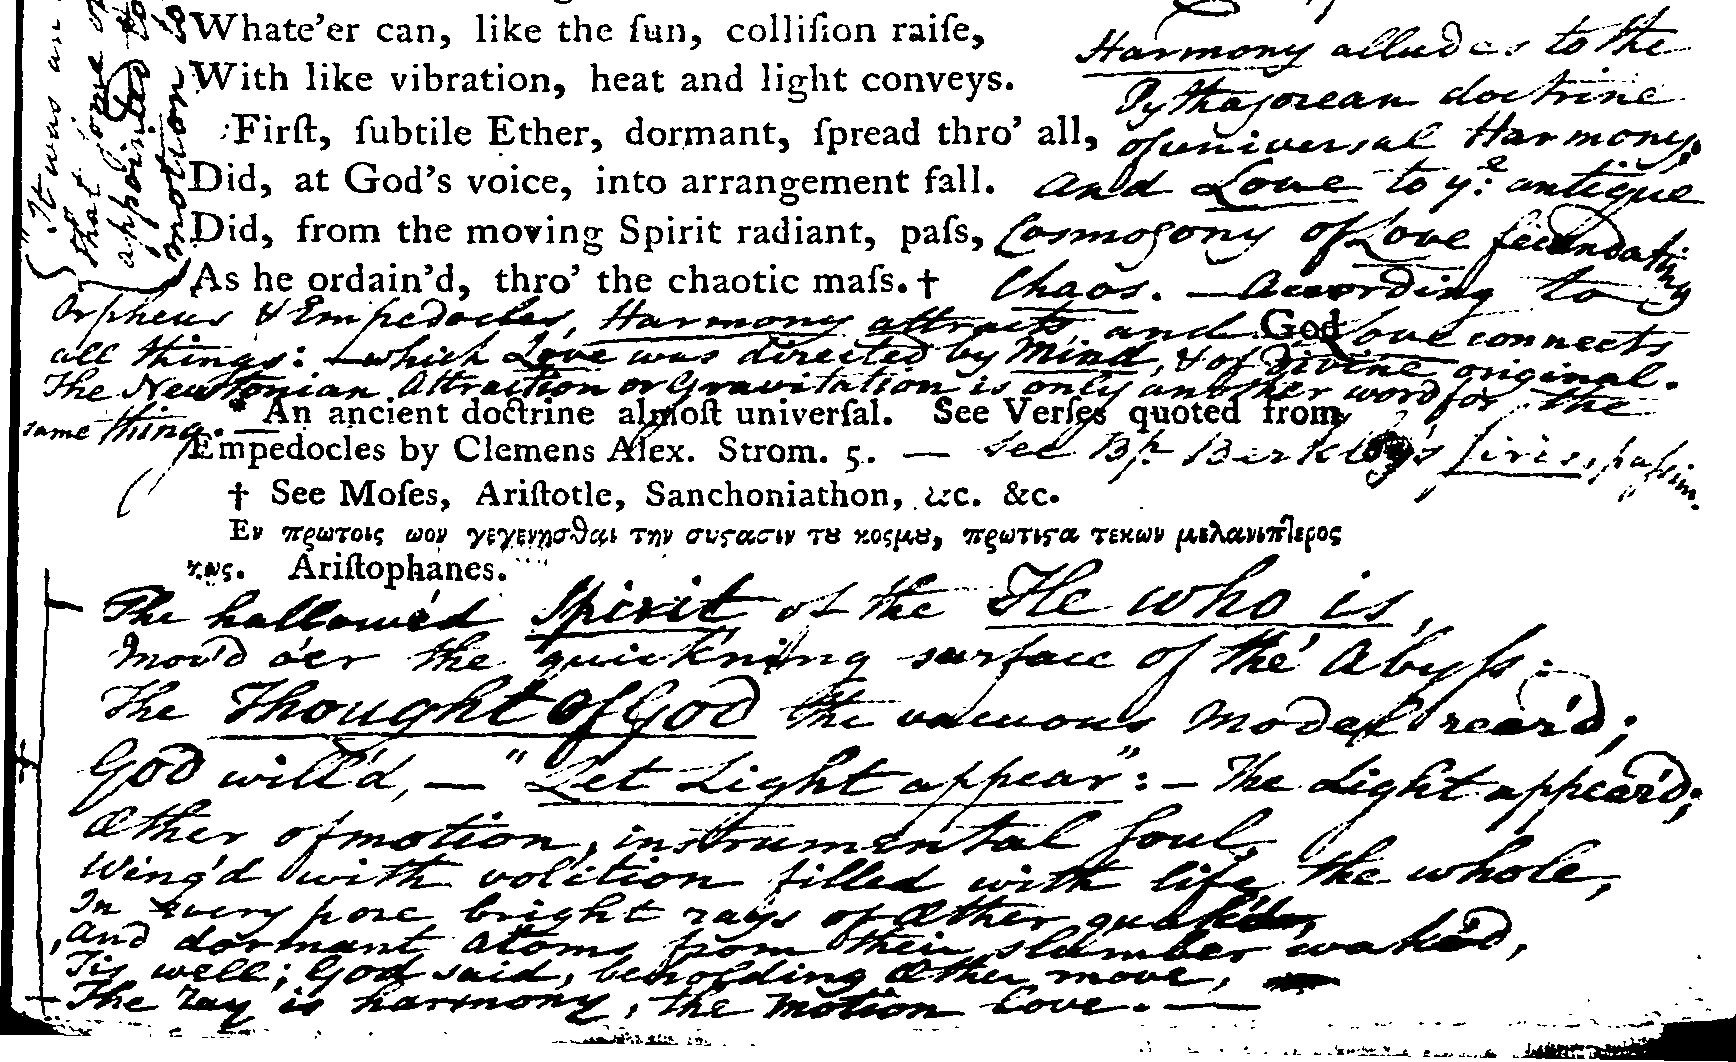 Whate'er can, like the ſun, colliſion raiſe,
With like vibration, heat and light conveys.
Firſt, ſubtile Ether, dormant, ſpread thro' all,
Did, at God's voice, into arrangement fall.
Did, from the moving Spirit radiant, paſs,
As he ordain'd, thro' the chaotic maſs. †
God
* An ancient doctrine almoſt univerſal. See Verſes quoted from
Empedocles by Clemens Alex. Strom. 5. — See Bp. Berkley's Siris, paſsim.
† See Moſes, Ariſtotle, Sanchoniathon, &c. &c.
Εν πρωτοις ωον γεγενησθαι την συϛασιν τȣ κοσμȣ, πρωτιϛα τεκων μελανιπτερος
Ariſtophanes.
"It was
that some
appointed
motion
Harmony alludes to the
Pythagorean doctrine
of universal Harmony,
and Love to ye antique
Cosmogony of Love fecundating
Chaos. — According to
Orpheus & Empedocles, Harmony attracts and Love connects
all things: — which Love was directed by Mind, & of Divine original.
The Newtonian Attraction or Gravitation is only another word for the
same thing. —
The hallow'd Spirit of the He who is,
Mov'd o'er the quick'ning surface of the Abyſs:
The Thought of God the vacuous Model rear'd;
God will'd, — "Let Light appear": — The Light appear'd;
Æther of motion, instrumental Soul,
Wing'd with volition filled with life the whole,
In every pore bright rays of Æther quak'd,
And dormant Atoms from their slumber wak'd,
Tis well; God said, beholding Æther move,
The Ray is harmony, the Motion Love. —